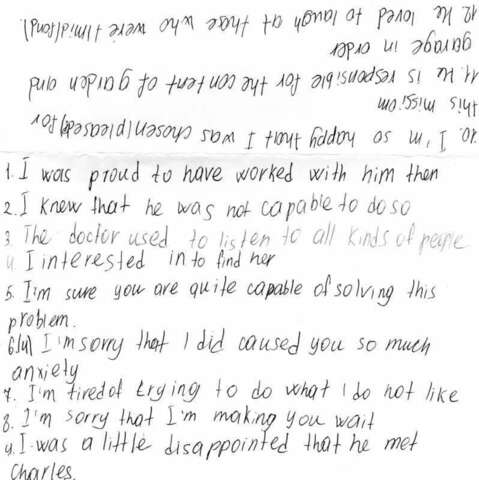 1. I was proud to have worked with him then
2. I knew that he was not capable to do so
3. The doctor used to listen to all kinds of people
4. I interested in to find her
5. I'm sure you are quite capable of solving this
problem.
6(4) I'm sorry that I did caused you so much
anxiety
7. I'm tired of trying to do what I do not like
8. I'm sorry that I'm making you wait
9. I was a little disappointed that he met
Charles.
10. I'm so happy that I was chosen(pleased) for
this mission
11. He is responsible for the content of garden and
garage in order
12. He loved to laugh at those who were timid